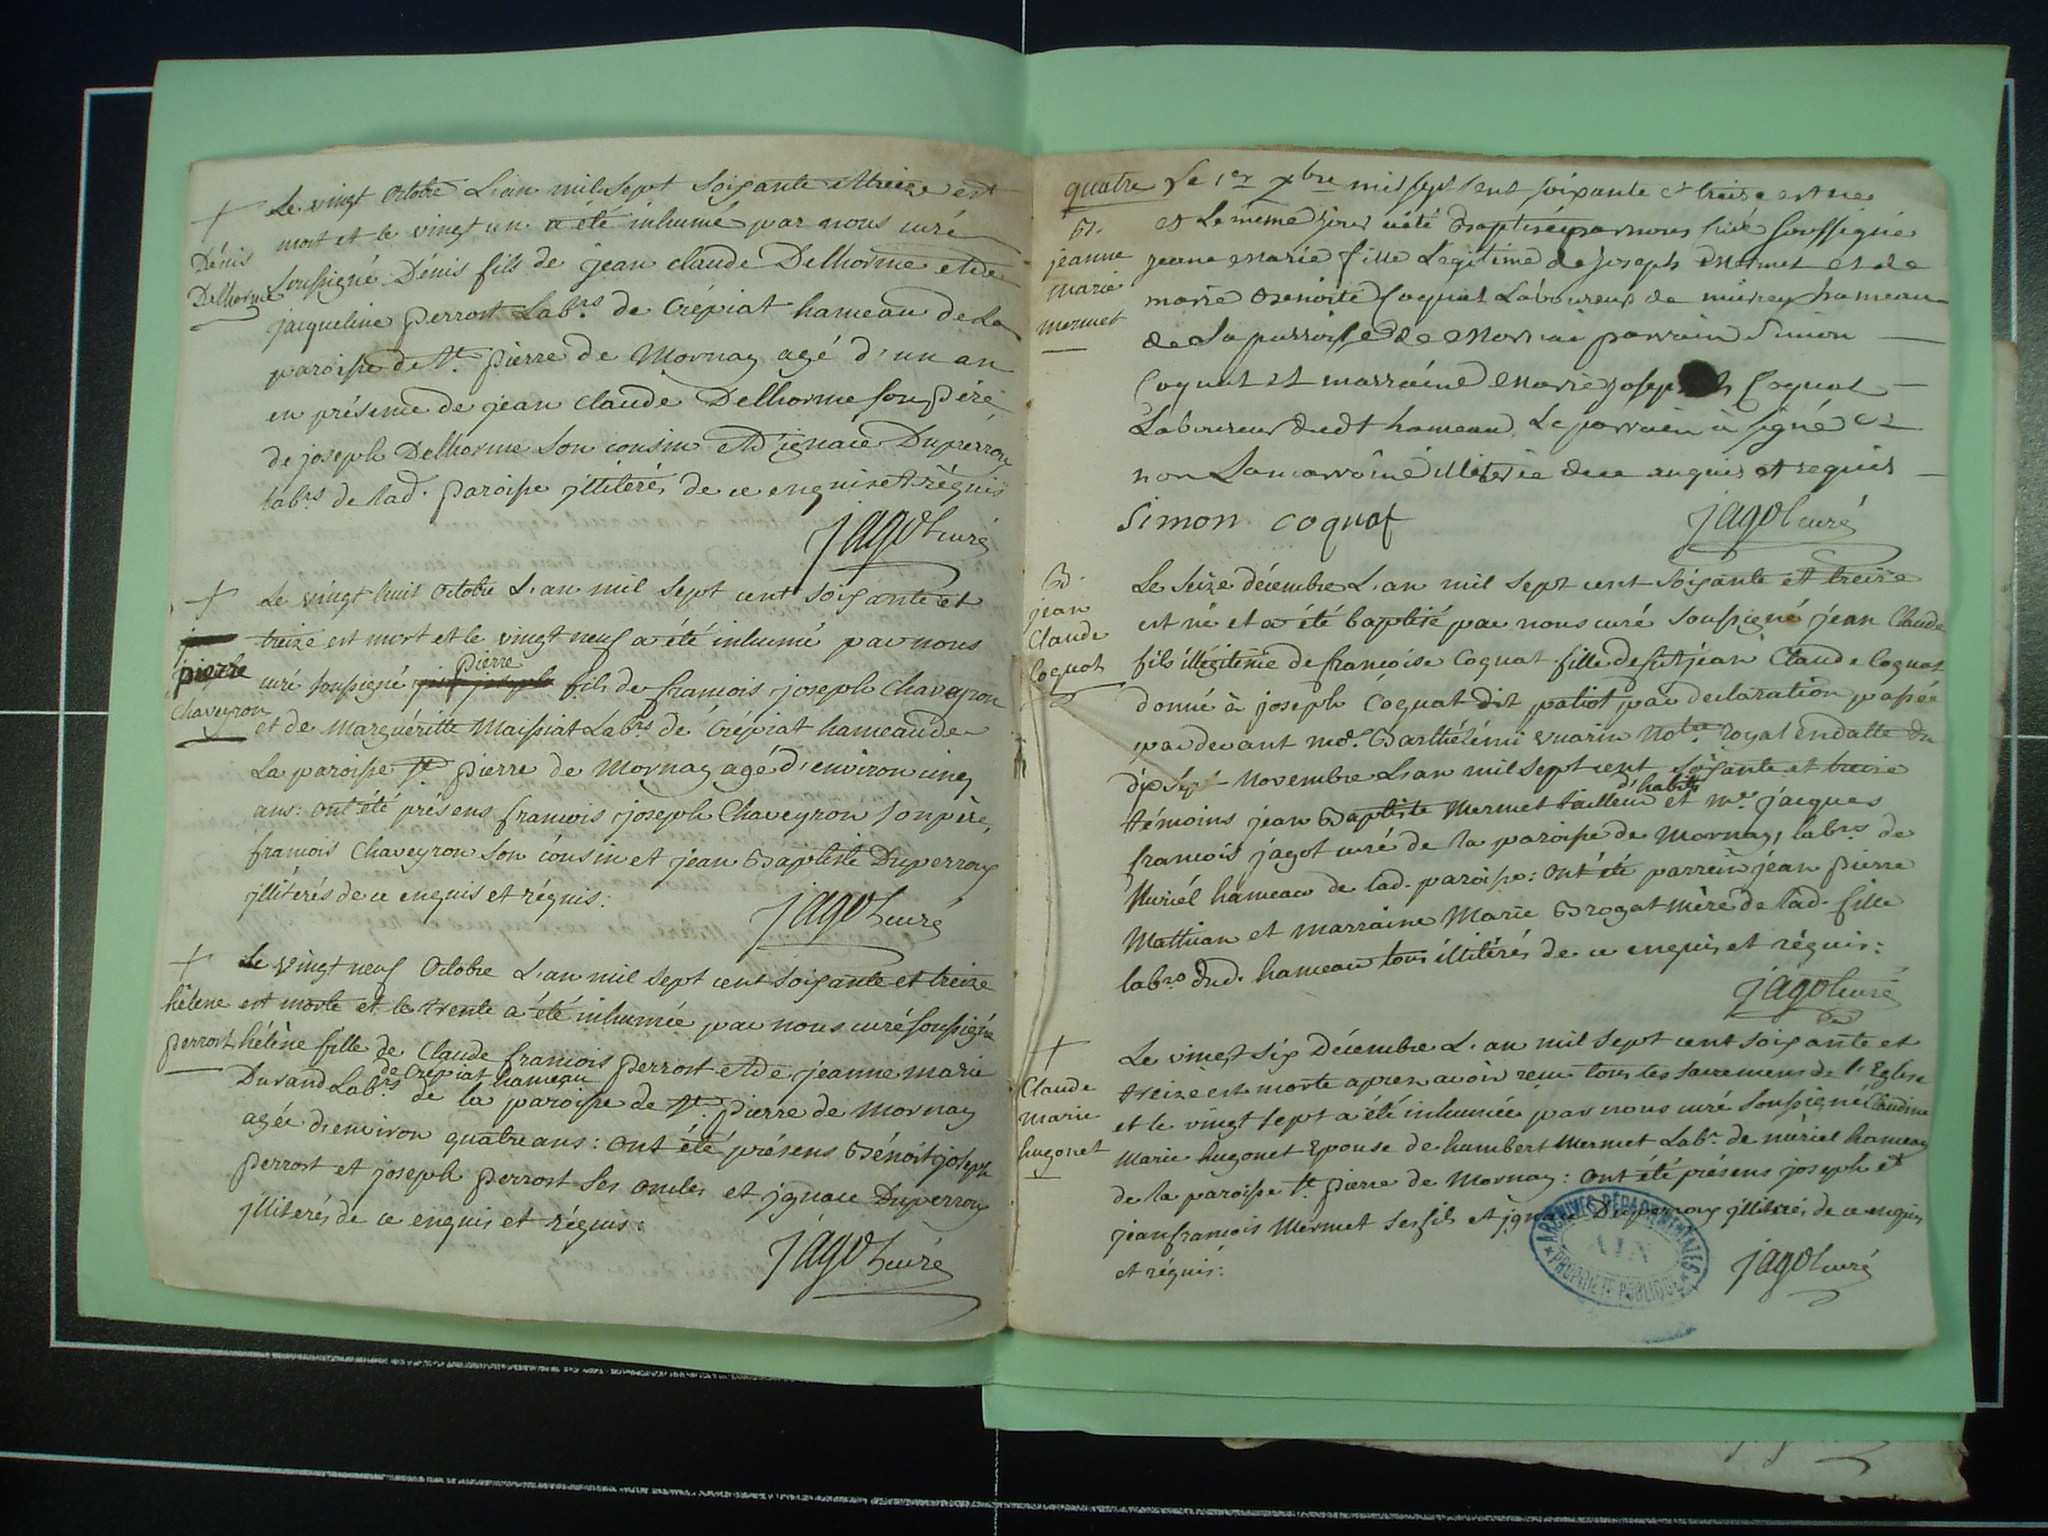 +
Dénis
Delhorme
Le vingt Octobre L'an mil sept soixante et treize est
mort et le vingt un a été inhumé par nous curé
soussigné Dénis fils de jean claude Delhorme et de
jacqueline perrost Lab.rs de Crépiat hameau de La
paroisse de St. pierre de Mornay agé d'un an
en présence de jean claude Delhorme son pére
de joseph Delhorme son cousin et d'ignace Duperrouy
lab.rs de lad. paroisse jllitérés de ce enquis et réquis
jagot curé
+
pierre
Chaveyron
Le vingt huit Octobre L'an mil sept cent soixante et
treize est mort et le vingt neuf a été inhumé par nous
curé soussigné pierre fils de francois joseph Chaveyron
et de Marguéritte Maissiat Lab.rs de Crépiat hameau de
La paroisse St. pierre de Mornay agé d'environ cinq
ans: ont été présens francois joseph Chaveyron son père,
francois Chaveyron son cousin et jean Baptiste Duperrouy
jllitérés de ce enquis et réquis:
jagot curé
+
hélene
perrost
Le vingt neuf Octobre L'an mil sept cent soixante et treize
est morte et le trente a été inhumée par nous curé soussigné
hélène fille de Claude francois perrost et de jeanne marie
Durand Lab.rs de Crépiat hameau de la paroisse de St. pierre de Mornay
agée d'environ quatre ans: ont été présens Bénoit joseph
perrost et joseph perrost ses oncles et jgnace Duperrouy
jllitérés de ce enquis et réquis:
jagot curé
quatre
B.
jeanne
marie
mermet
Le 1er xbre mil sept cent soixante et treize est née
et Le même jour a été Baptisée par nous Curé soussigné
jeane Marie fille Légitime de joseph Mermet et de
marie Benoite Coquat Laboureurs de muriey hameau
de La parroisse de Mornai parrain Simon
Coquat et marraine Marie joseph Coquat
Laboureurs dudt hameau Le parrain a signé et
non La marraine illiterée de ce enquis et requis
Simon coquat
jagot curé
B.
jean
Claude
Coquat
Le seize décembre L'an mil sept cent soixante et treize
est né et a été baptisé par nous curé soussigné jean Claude
fils illégitime de francoise Coquat fille de fût jean Claude Coquat
donné à joseph Coquat dit patiot par declaration passée
par devant md. Barthélémi vuarin Not.re royal en datte du
dix sept Novembre L'an mil sept cent soixante et treize
témoins jean Baptiste Mermet tailleur d'habits et mr. jacques
francois jagot curé de la paroisse de Mornay, lab.rs de
Muriél hameau de lad. paroisse: ont été parrein jean pierre
Mathian et marraine Marie Brogat mère de lad. fille
lab.rs dud. hameau tous illitérés de ce enquis et réquis:
jagot curé
+
Claude
marie
hugonet
Le vingt six Décembre L'an mil sept cent soixante et
treize est morte apres avoir reçu tous les sacremens de l'Eglise
et le vingt sept a été inhumée par nous curé soussigné Claudine
Marie hugonet Epouse de humbert Mermet Lab.r de muriel hameau
de la paroisse St. pierre de Mornay: ont été présens joseph et
jean francois Mermet ses fils et jgnace Duperrouy jllitérés de ce enquis
et réquis:
jagot curé
ARCHIVES DÉPARTEMENTALES
AIN
PROPRIÉTÉ PUBLIQUE